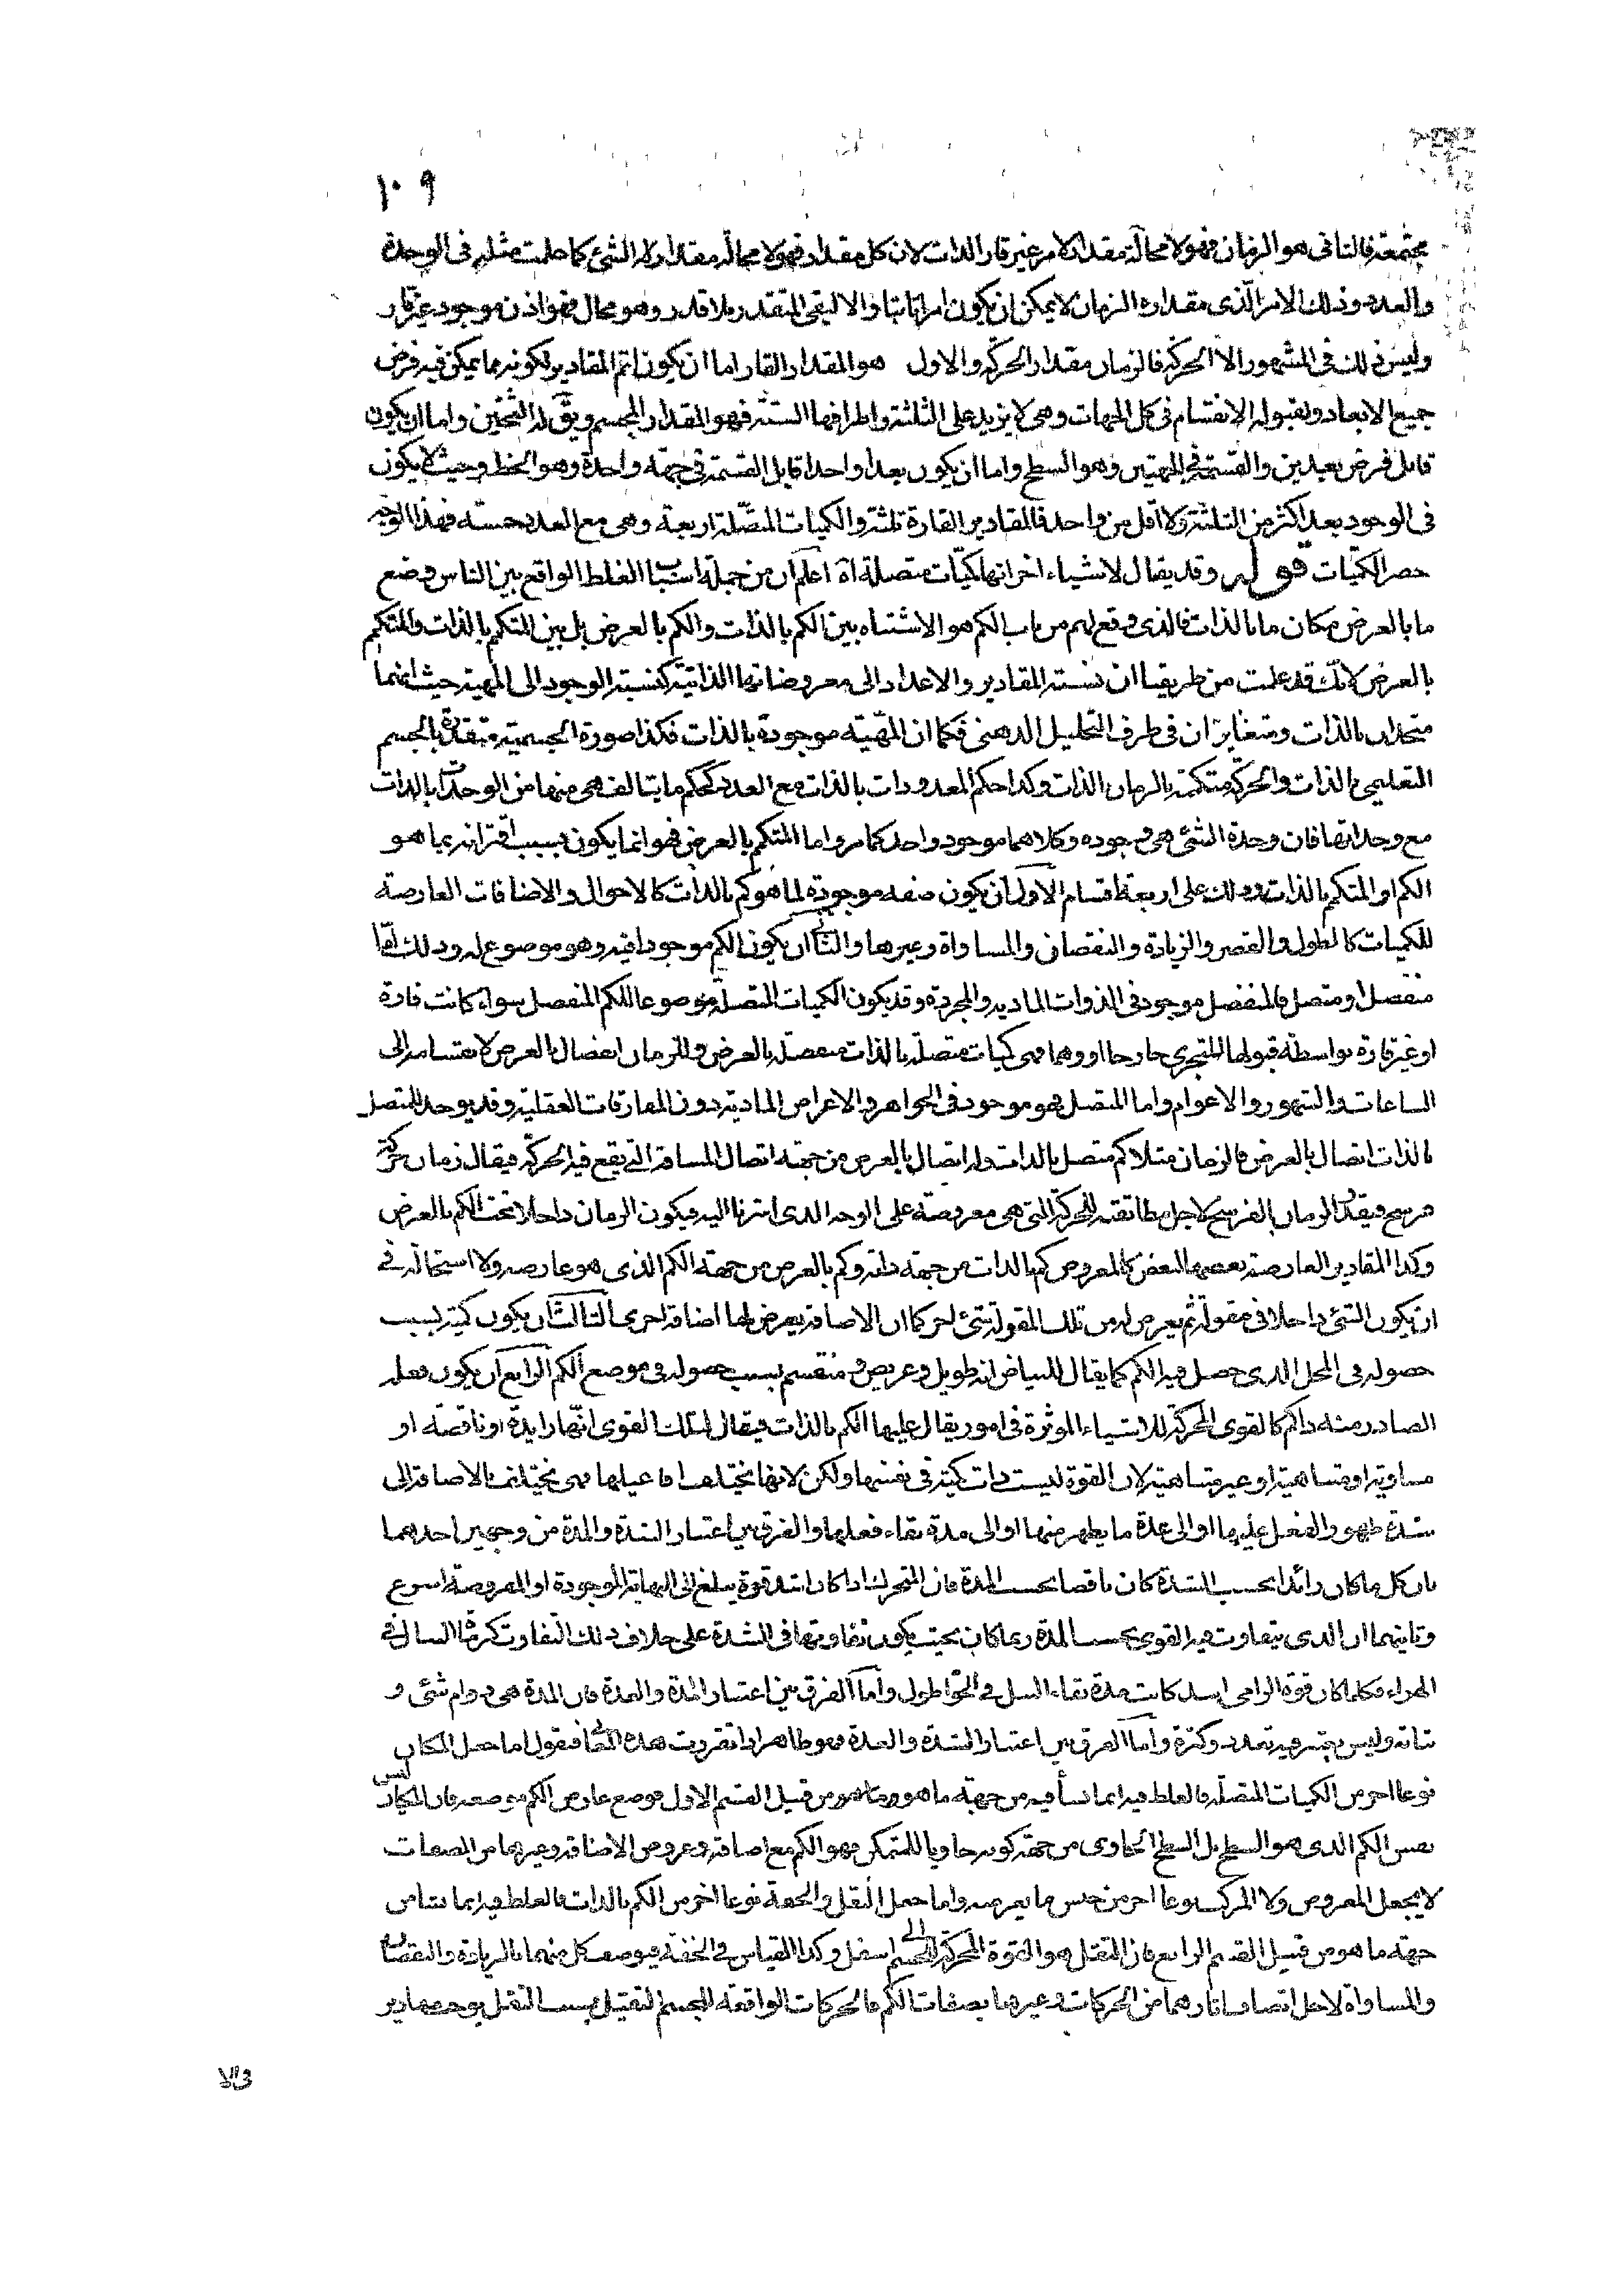 ١٠٩
مجتمعة فالثانى هو الزمان فهو لا محالة مقدار لامر غير قار الذات لان كل مقدار فهو لا محالة مقدار له الشئ كما علمت مثله فى الوحدة
والعدد وذلك الامر الذى مقداره الزمان لا يمكن ان يكون امرا ثابتا والا لبقى المتقدر بلا قدر وهو محال فهو اذن موجود غير قار
وليس ذلك فى المشهور الا الحركة فالزمان مقدار الحركة والاول هو المقدار القار اما ان يكون اتم المقادير لكونه مما يمكن فيه فرض
جميع الابعاد وبقبوله الانقسام فى كل الجهات وهى لا يزيد على الثلثة واطرافها الستة فهو المقدار المجسم ويق له الثخين واما ان يكون
قابل فرض بعدين والقسمة فى الجهتين وهو السطح واما ان يكون بعدا واحدا قابل القسمة فى جهة واحدة وهو الخط وحيث لا يكون
فى الوجود بعد اكثر من الثلثة ولا اقل من واحد فالمقادير القارة ثلثة والكميات المتصلة اربعة وهى مع العدد خمسة فهذا الوجه
حصر الكميات قوله وقد يقال لاشياء اخر انها كميات متصلة اه اعلم ان من جملة اسباب الغلط الواقع بين الناس وضع
ما بالعرض مكان ما بالذات فالذى وقع لهم من باب الكم هو الاشتباه بين الكم بالذات والكم بالعرض بل بين المتكمم بالذات والمتكمم
بالعرض لانك قد علمت من طريقنا ان نسبة المقادير والاعداد الى معروضاتها الذاتية كنسبة الوجود الى المهية حيث انهما
متحدان بالذات ومتغايران فى ظرف التحليل الذهنى فكما ان المهية موجودة بالذات فكذا صورة الجسمية متقدرة بالجسم
التعليمى بالذات والحركة متكممة بالزمان الذات وكذا حكم المعدودات بالذات مع العدد كحكم ما يتالف هى منها من الوحدات بالذات
مع وحداتها فان وحدة الشئ هى وجوده وكلاهما موجود واحد كما مر واما المتكمم بالعرض فهو انما يكون بسبب اقترانه بما هو
الكم او المتكمم بالذات وذلك على اربعة اقسام الاول ان يكون صفة موجودة لما هو كم بالذات كالاحوال والاضافات العارضة
للكميات كالطول والقصر والزيادة والنقصان والمساواة وغيرها والثانى ان يكون الكم موجودا فيه وهو موضوع له وذلك اما
منفصل او متصل فالمنفصل موجود فى الذوات المادية والمجردة وقد يكون الكميات المتصلة موضوعا للكم المنفصل سواء كانت قارة
او غير قارة بواسطة قبولها للتجزى خارجا او وهما فهى كميات متصلة بالذات منفصلة بالعرض وللزمان انفصال بالعرض لانقسامه الى
الساعات والشهور والاعوام واما المتصل فهو موجود فى الجواهر والاعراض المادية دون المفارقات العقلية وقد يوجد للمتصل
بالذات اتصال بالعرض فالزمان مثلا كم متصل بالذات وله اتصال بالعرض من جهة اتصال المسافة التى يقع فيه الحركة فيقال زمان حركة
فرسخ فيقدر الزمان بالفرسخ لاجل مطابقته للحركة التى هى معروضة على الوجه الذى اشرنا اليه فيكون الزمان داخلا تحت الكم بالعرض
وكذا المقادير العارضة بعضها لبعض كالمعروض كم بالذات من جهة ذاته وكم بالعرض من جهة الكم الذى هو عارضه ولا استحالة فى
ان يكون الشئ داخلا فى مقولة ثم يعرض له من تلك المقولة شئ اخر كما ان الاضافة يعرض لها اضافة اخرى الثالث ان يكون كميته بسبب
حصوله فى المحل الذى حصل فيه الكم كما يقال للبياض انه طويل وعريض ومنقسم بسبب حصوله فى موضع الكم الرابع ان يكون فعله
الصادر منه ذاكم كالقوى المحركة للاشياء الموثرة فى امور يقال عليها الكم بالذات فيقال لتلك القوى انها زايدة او ناقصة او
مساوية او متناهية او غير متناهية لان القوة ليست ذات كمية فى نفسها ولكن لانها يختلف افاعيلها فهى تختلف بالاضافة الى
شدة ظهور الفعل عليها او الى عدة ما يظهر منها او الى مدة بقاء فعلها والفرق بين اعتبار الشدة والمدة من وجهين احدهما
بان كل ما كان زائدا بحسب الشدة كان ناقصا بحسب المدة فان المتحرك اذا كان اشد قوة يبلغ الى النهاية الموجودة او المفروضة اسرع
وثانيهما ان الذى يتفاوت فيه القوى بحسب المدة ربما كان بحيث يكون تفاوتها فى الشدة على خلاف ذلك التفاوت كرشا السال فى
الهواء فكلما كان قوة الرامى اشد كانت مدة بقاء السل فى الجو اطول واما الفرق بين اعتبار المدة والعدة فان المدة هى دوام شئ و
ثباته وليس يعتبر فيه تعدد وكثرة واما الفرق بين اعتبار الشدة والعدة فهو ظاهر اذا تقررت هذه المعانى فنقول اما جعل المكان
نوعا اخر من الكميات المتصلة فالغلط فيه انما نشأ فيه من جهة ما هو وما هو من قبيل القسم الاول فوضع عارض الكم موضعه فان المكان ليس
نفس الكم الذى هو السطح بل السطح الحاوى من جهة كونه حاويا للمتمكن فهو الكم مع اضافة وعروض الاضافة وغيرها من الصفات
لا يجعل المعروض ولا المركب نوعا اخر من جنس ما يعرضه واما جعل الثقل والخفة نوعا اخر من الكم بالذات فالغلط فيه انما نشا من
جهة ما هو من قبيل القسم الرابع فان الثقل هو القوة المحركة للجسم الى اسفل وكذا القياس فى الخفة فيوصف كل منهما بالزيادة والنقصان
والمساواة لاجل اتصاف اثارهما من الحركات وغيرها بصفات الكم فالحركات الواقعة للجسم الثقيل بسبب الثقل يوجد مقادير